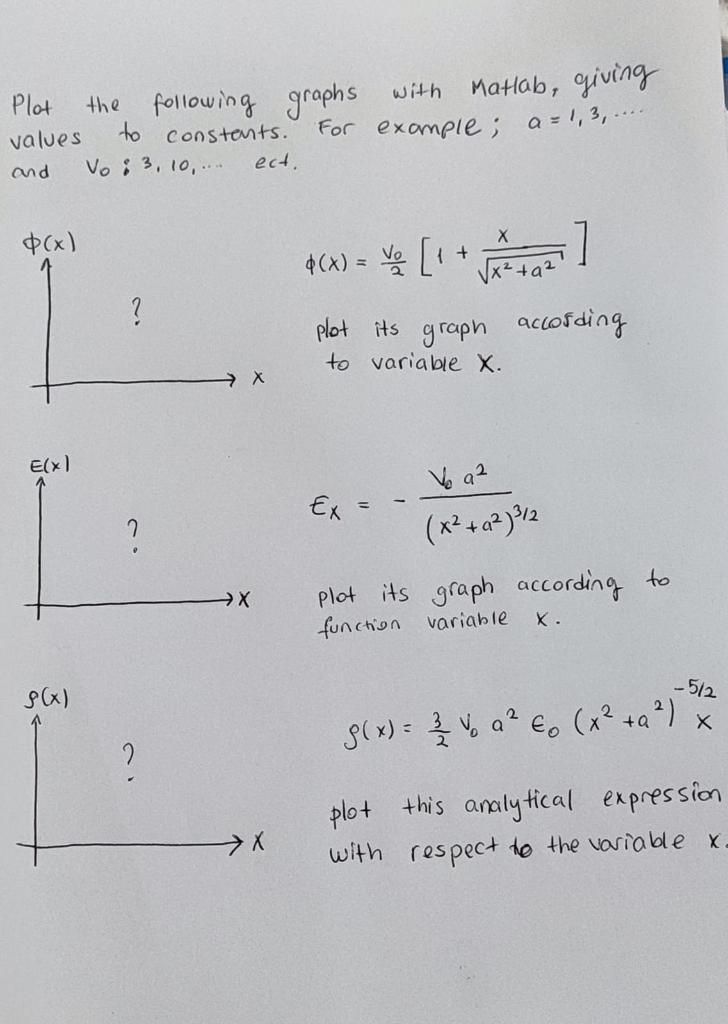 Plot the following graphs with Matlab, giving
values to constants. For example; a = 1, 3, ....
and V₀ : 3, 10, ... ect.
ϕ(x)
?
x
ϕ(x) = V₀/2 [1 + x/√(x² + a²)]
plot its graph according
to variable x.
E(x)
?
x
Eₓ = - V₀ a²/(x² + a²)^3/2
plot its graph according to
function variable x.
ρ(x)
?
x
ρ(x) = 3/2 V₀ a² ϵ₀ (x² + a²)^-5/2 x
plot this analytical expression
with respect to the variable x.